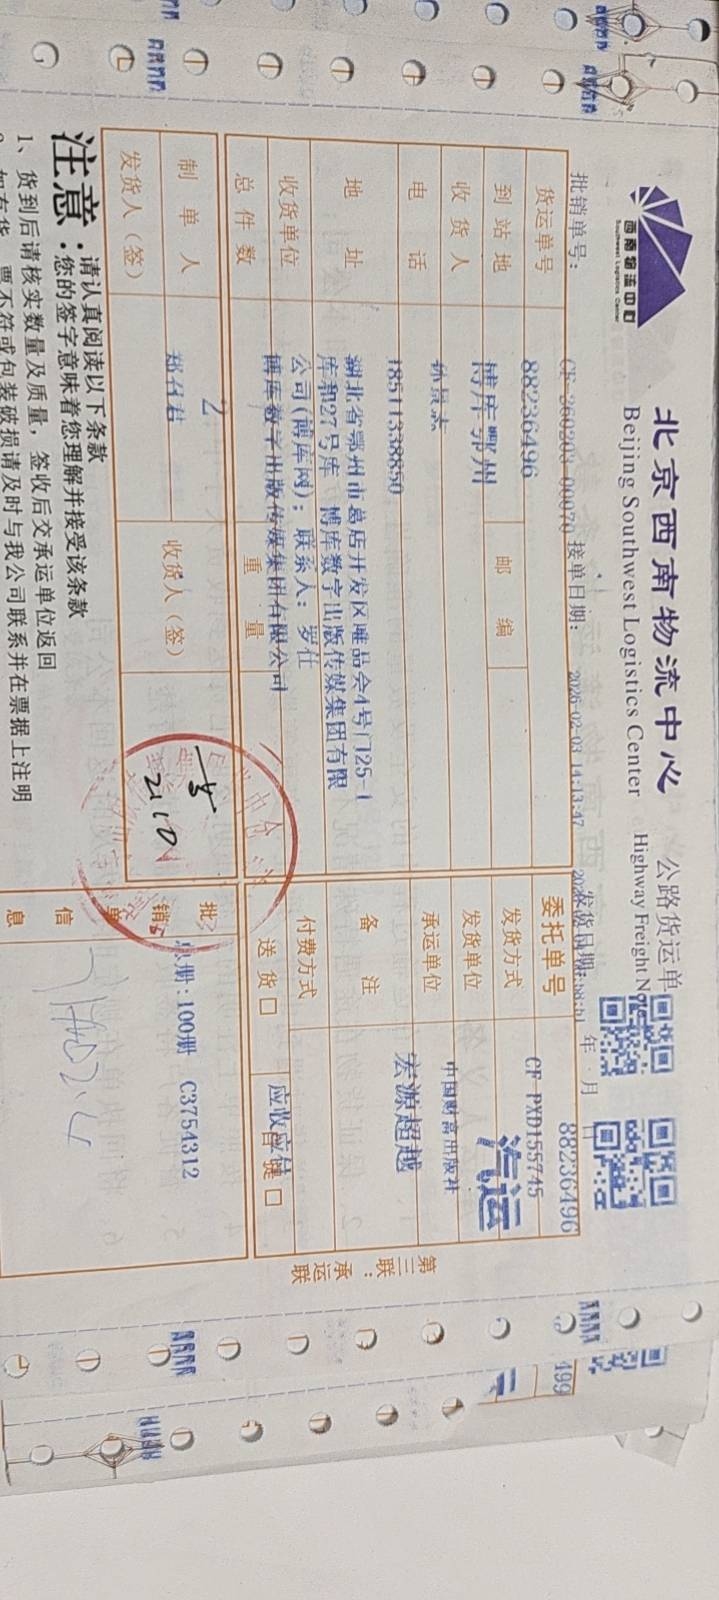 西南物流中心
Southwest Logistics Center
北京西南物流中心
Beijing Southwest Logistics Center
公路货运单
Highway Freight Note
批销单号：CF-260203-00070 接单日期：2026-02-03 14:13:47 发货日期： 年 月 日
88236496
货运单号 88236496 委托单号 CF-PXD155745
到站地 博库鄂州 邮编 发货方式 汽运
收货人 孙景志 发货单位 中国财富出版社
电话 18511338850 承运单位 宏源超越
地址 湖北省鄂州市葛店开发区唯品会4号门25-1
库和27号库 博库数字出版传媒集团有限
公司(博库网)；联系人：罗仕
备注
收货单位 博库数字出版传媒集团有限公司 付费方式 应收应付
总件数 2 重量 送货 自提
制单人 郑召君 收货人（签）
发货人（签）
2110
批销单信息 总册：100册 C3754312
第三联：承运联
注意：
请认真阅读以下条款
您的签字意味着您理解并接受该条款
1、货到后请核实数量及质量，签收后交承运单位返回
票不符或包装破损请及时与我公司联系并在票据上注明
499